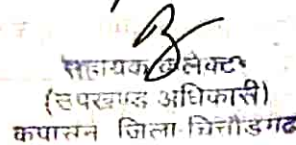 सहायक कलेक्टर
(उपखण्ड अधिकारी)
कपासन जिला-चित्तौड़गढ